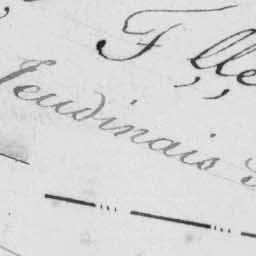 F, lle,
Jeudinais